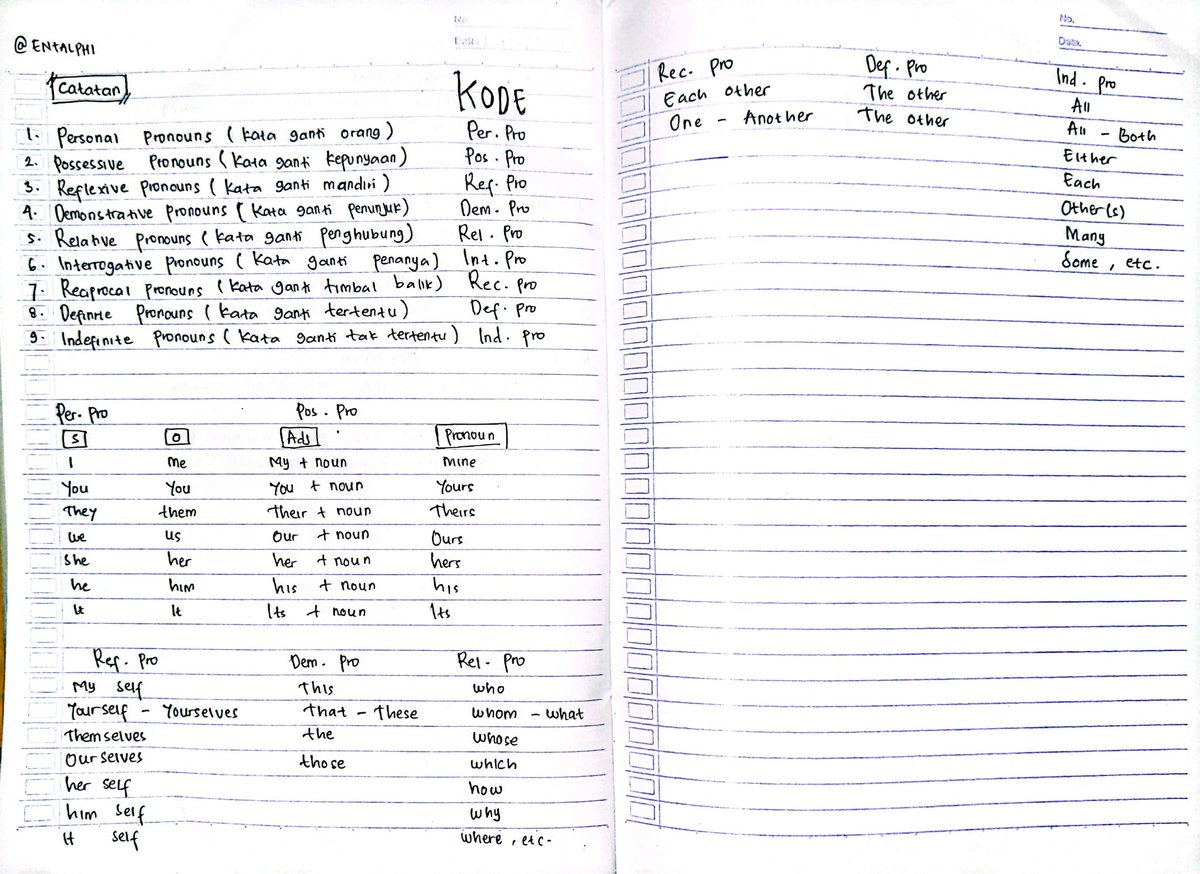 No.
Date.
@ENTALPHI
Catatan
KODE
1. Personal pronouns (kata ganti orang) Per. Pro
2. Possessive pronouns (kata ganti kepunyaan) Pos. Pro
3. Reflexive pronouns (kata ganti mandiri) Ref. Pro
4. Demonstrative pronouns (kata ganti penunjuk) Dem. Pro
5. Relative pronouns (kata ganti penghubung) Rel. Pro
6. Interrogative pronouns (kata ganti penanya) Int. Pro
7. Reciprocal pronouns (kata ganti timbal balik) Rec. pro
8. Definite pronouns (kata ganti tertentu) Def. pro
9. Indefinite pronouns (kata ganti tak tertentu) Ind. pro
Per. pro Pos. pro
S O Adj Pronoun
I me My + noun mine
You You You + noun Yours
They them Their + noun Theirs
we us our + noun Ours
she her her + noun hers
he him his + noun his
It It Its + noun Its
Ref. pro Dem. pro Rel. pro
My self This who
Yourself - Yourselves That - These whom - what
Themselves the whose
Our selves those which
her self how
him self why
It self where, etc.
No.
Date.
Rec. pro Def. pro Ind. pro
Each other The other All
One - Another The other All - Both
Either
Each
Other(s)
Many
Some, etc.